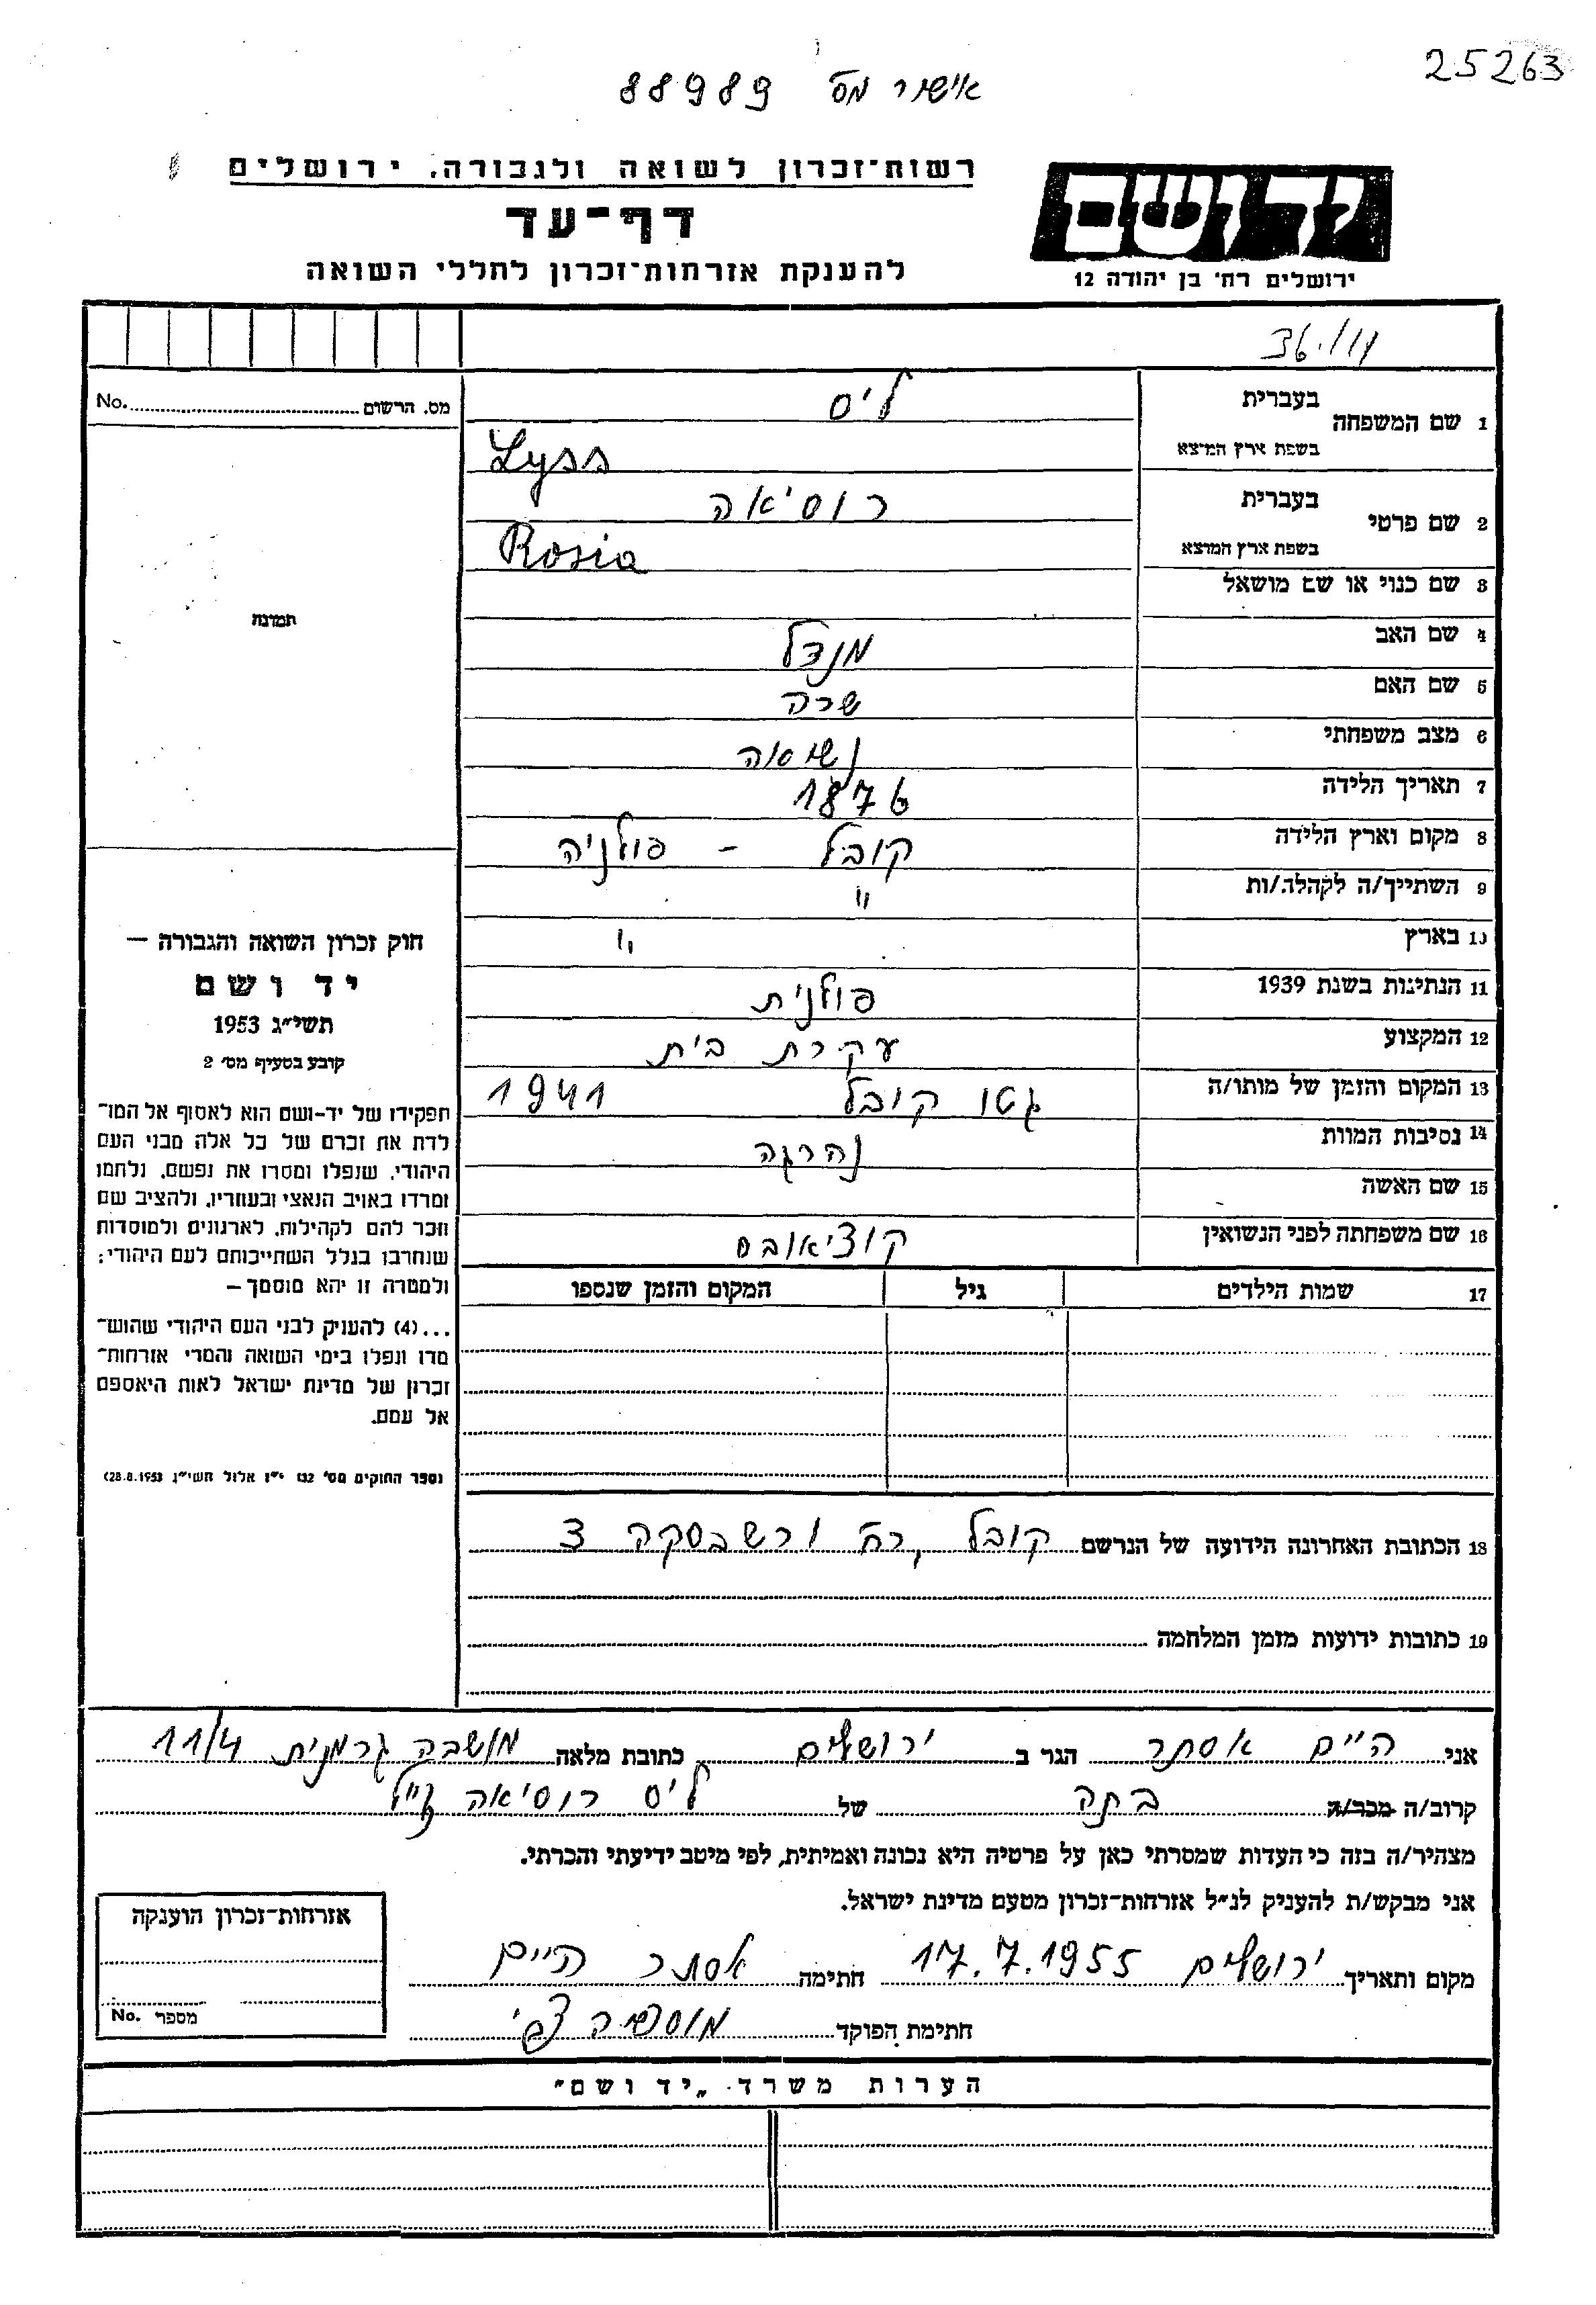 25263
אישור מס 88989
רשות־זכרון לשואה ולגבורה, ירושלים
דף־עד
להענקת אזרחות־זכרון לחללי השואה
יד ושם
ירושלים רח' בן יהודה 12
מס. הרשום No.
תמונה
1 שם המשפחה
בעברית ליס
בשפת ארץ המוצא Lyss
2 שם פרטי
בעברית רוסיאה
בשפת ארץ המוצא Rosia
3 שם כנוי או שם מושאל
4 שם האב מנדל
5 שם האם שרה
6 מצב משפחתי נשואה
7 תאריך הלידה 1876
8 מקום וארץ הלידה קובל – פולניה
9 השתייך/ה לקהלה/ות "
10 בארץ "
11 הנתינות בשנת 1939 פולנית
12 המקצוע עקרת בית
13 המקום והזמן של מותו/ה גטו קובל 1941
14 נסיבות המוות נהרגה
15 שם האשה
16 שם משפחתה לפני הנשואין
17 שמות הילדים גיל המקום והזמן שנספו
חוק זכרון השואה והגבורה –
יד ושם
תשי"ג 1953
קובע בסעיף מס' 2
תפקידו של יד-ושם הוא לאסוף אל המו־
לדת את זכרם של כל אלה מבני העם
היהודי, שנפלו ומסרו את נפשם, נלחמו
ומרדו באויב הנאצי ובעוזריו, ולהציב שם
וזכר להם לקהילות, לארגונים ולמוסדות
שנחרבו בגלל השתייכותם לעם היהודי;
ולמטרה זו יהא מוסמך –
...(4) להעניק לבני העם היהודי שהוש־
מדו ונפלו בימי השואה והמרי אזרחות־
זכרון של מדינת ישראל לאות היאספם
אל עמם.
(ספר החוקים מס' 132 י"ז אלול תשי"ג 28.8.1953)
18 הכתובת האחרונה הידועה של הנרשם קובל, רח' ורשבסקה 3
19 כתובות ידועות מזמן המלחמה
אני היים אסתר הגר ב ירושלים כתובת מלאה מושבה גרמנית 11/4
קרוב/ה מכר/ה בתה של ליס רוסיאה
מצהיר/ה בזה כי העדות שמסרתי כאן על פרטיה היא נכונה ואמיתית, לפי מיטב ידיעתי והכרתי.
אני מבקש/ת להעניק לנ"ל אזרחות־זכרון מטעם מדינת ישראל.
מקום ותאריך ירושלים 17.7.1955 חתימה אסתר היים
חתימת הפוקד
אזרחות־זכרון הוענקה
מספר No.
הערות משרד „יד ושם"